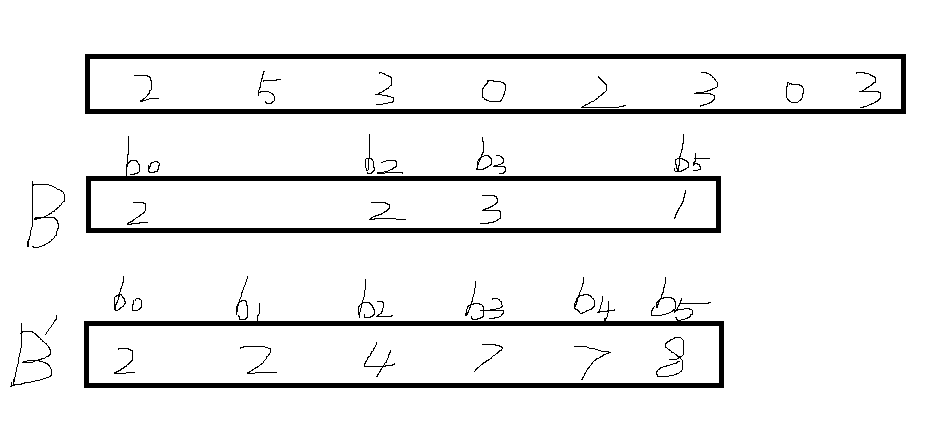 2 5 3 0 2 3 0 3
b0 b2 b3 b5
B 2 2 3 1
b0 b1 b2 b3 b4 b5
B' 2 2 4 7 7 8